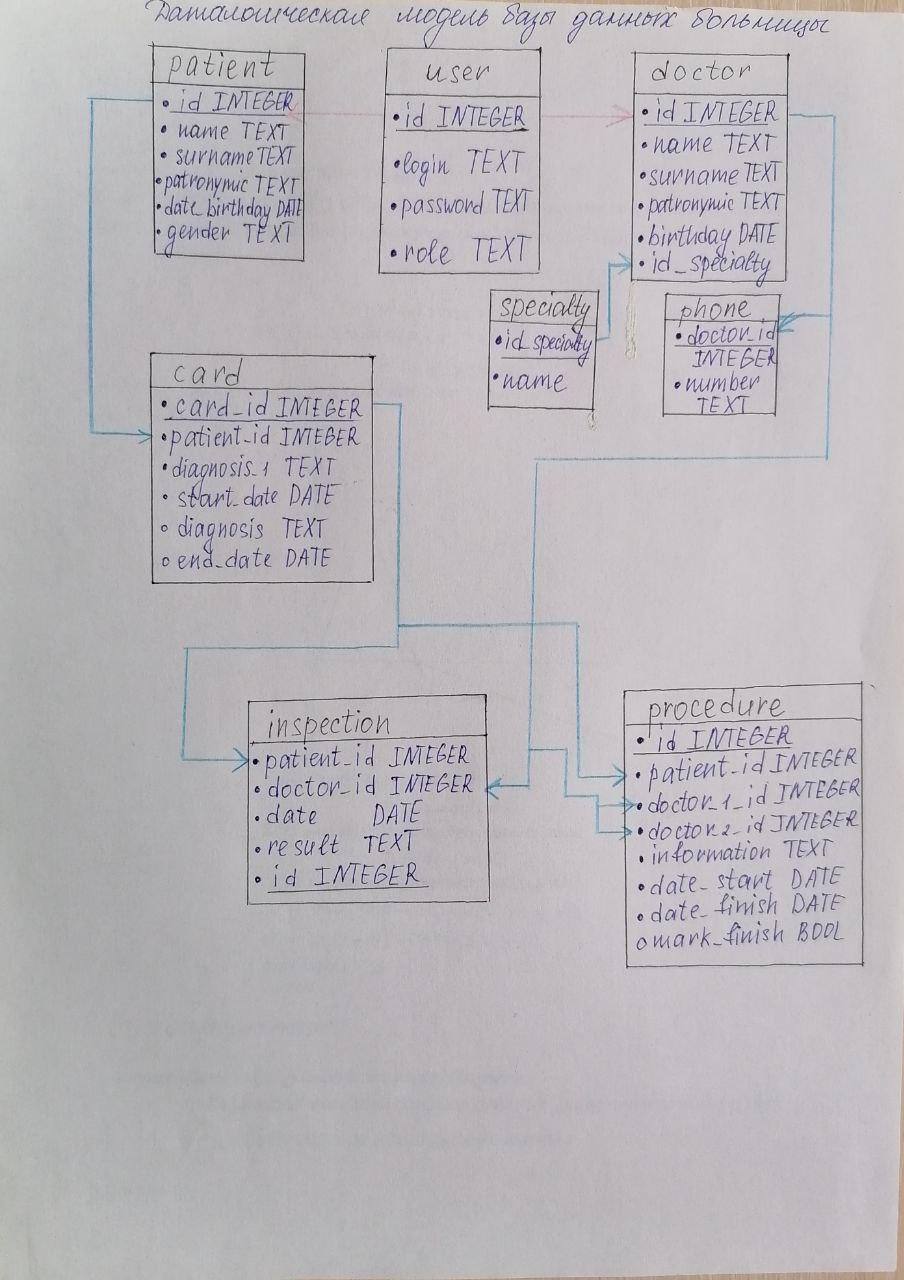 Даталогическая модель базы данных больницы
patient
• id INTEGER
• name TEXT
• surname TEXT
• patronymic TEXT
• date_birthday DATE
• gender TEXT
user
• id INTEGER
• login TEXT
• password TEXT
• role TEXT
doctor
• id INTEGER
• name TEXT
• surname TEXT
• patronymic TEXT
• birthday DATE
• id_specialty
specialty
• id_specialty
• name
phone
• doctor_id
INTEGER
• number
TEXT
card
• card_id INTEGER
• patient_id INTEGER
• diagnosis_1 TEXT
• start_date DATE
○ diagnosis TEXT
○ end_date DATE
inspection
• patient_id INTEGER
• doctor_id INTEGER
• date DATE
• result TEXT
• id INTEGER
procedure
• id INTEGER
• patient_id INTEGER
• doctor_1_id INTEGER
• doctor_2_id INTEGER
• information TEXT
• date_start DATE
• date_finish DATE
○ mark_finish BOOL